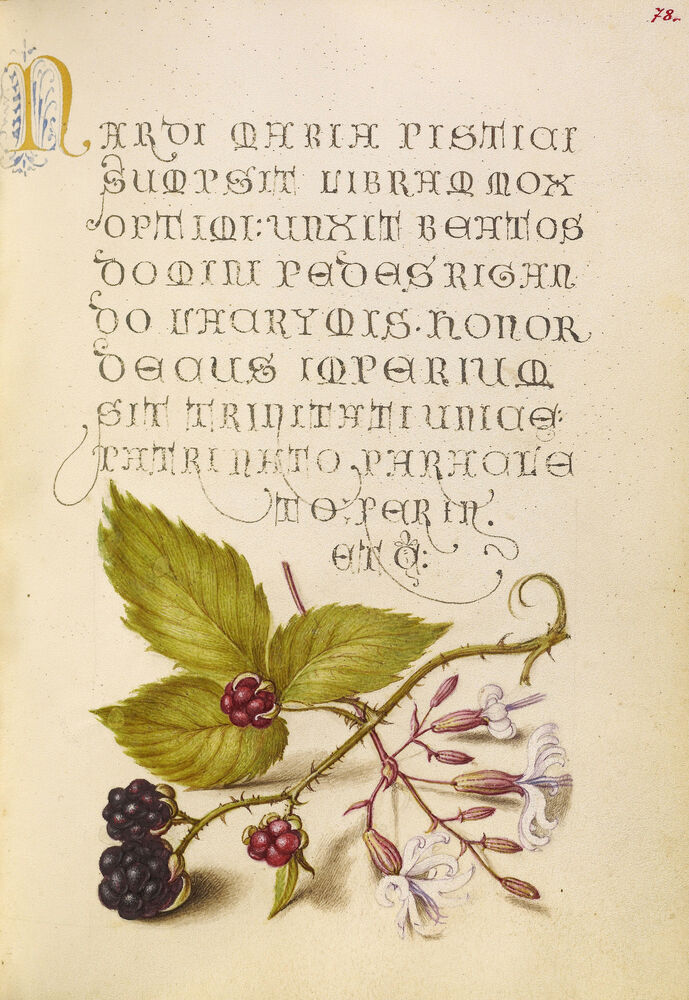 78.
NARDI MARIA PISTICI
SUMPSIT LIBRAM MOX
OPTIMI: UNXIT BEATOS
DOMINI PEDES RIGAN
DO LACRYMIS. HONOR
DECUS IMPERIUM
SIT TRINITATI UNICAE:
PATRI NATO, PARACLE
TO: PER IN.
ET Q: